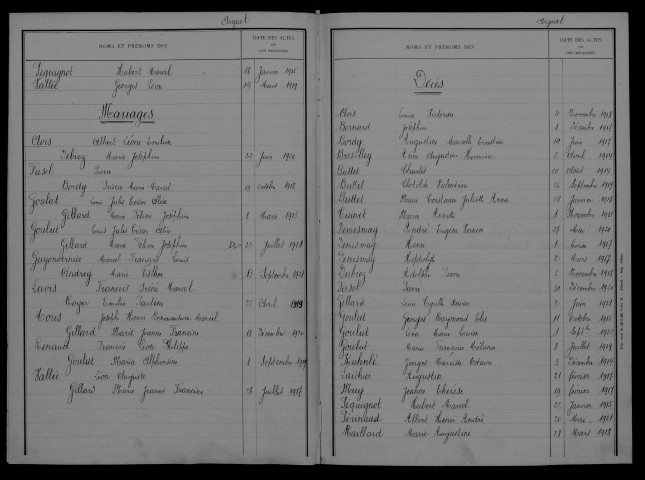 Arguel
NOMS ET PRÉNOMS DES
DATE DES ACTES
OU
DES REGISTRES
Pequignot Hubert Marcel 18 Janvier 1915
Vallée Georges Léon 24 Mars 1919
Mariages
Clois Albert Léon Emilien
Debiez Marie Joséphine 22 Juin 1920
Fasel Pierre
Bordy Marie Marcel 19 Octobre 1918
Goulut Louis Jules César Elie
Gillard Marie Félicie Joséphine 8 Mars 1913
Goulut Louis Jules César Elie
Gillard Marie Félicie Joséphine 23 Juillet 1921
Marcel François Louis
Andrey Marie Esther 13 Septembre 1921
Lavis François Irénée Marcel
Boyer Emilie Pauline 25 Avril 1919
Joseph Henri Bonaventure Marcel
Gillard Marie Jeanne Francine 18 Décembre 1920
Renaud François Léon Philippe
Goulut Maria Alphonsine 1 Septembre
Vallée Léon Auguste
Gillard Marie Jeanne Francine 28 Juillet 1917
Arguel
NOMS ET PRÉNOMS DES
DATE DES ACTES
OU
DES REGISTRES
Décès
Clois Louis Victorin 11 Novembre 1918
Bernard Joséphine 1 Décembre 1917
Bordy Augustine Marcelle Ernestine 10 Juin 1917
Bresilley Anne Augustine 2 Avril 1914
Buttet Charles 10 Août 1914
Buttet Clotilde Valentine 26 Septembre 1919
Buttet Marie Constance Juliette Anna 28 Janvier 1918
Marie 1 Novembre 1921
Demesmay André Eugène 27 Mai 1920
Demesmay Henri 1 Février 1917
Demesmay Hippolyte 2 Mars 1917
Debiez Adolphe Léon 6 Novembre 1921
Fasel Jean 30 Décembre 1920
Gillard Louis Cyrille Xavier 2 Juin 1921
Goulut Georges Raymond Elie 11 Octobre 1915
Goulut Marie Louise 1 Septbre
Goulut Marie Françoise 8 Juillet 1914
Georges Narcisse Octave 3 Décembre 1914
Augustin 21 Février 1917
Jeanne Thérèse 19 Février 1917
Pequignot Hubert Marcel 21 Janvier 1915
Albert Henri André 20 Mai 1921
Maillard Marie Augustine 28 Mars 1918